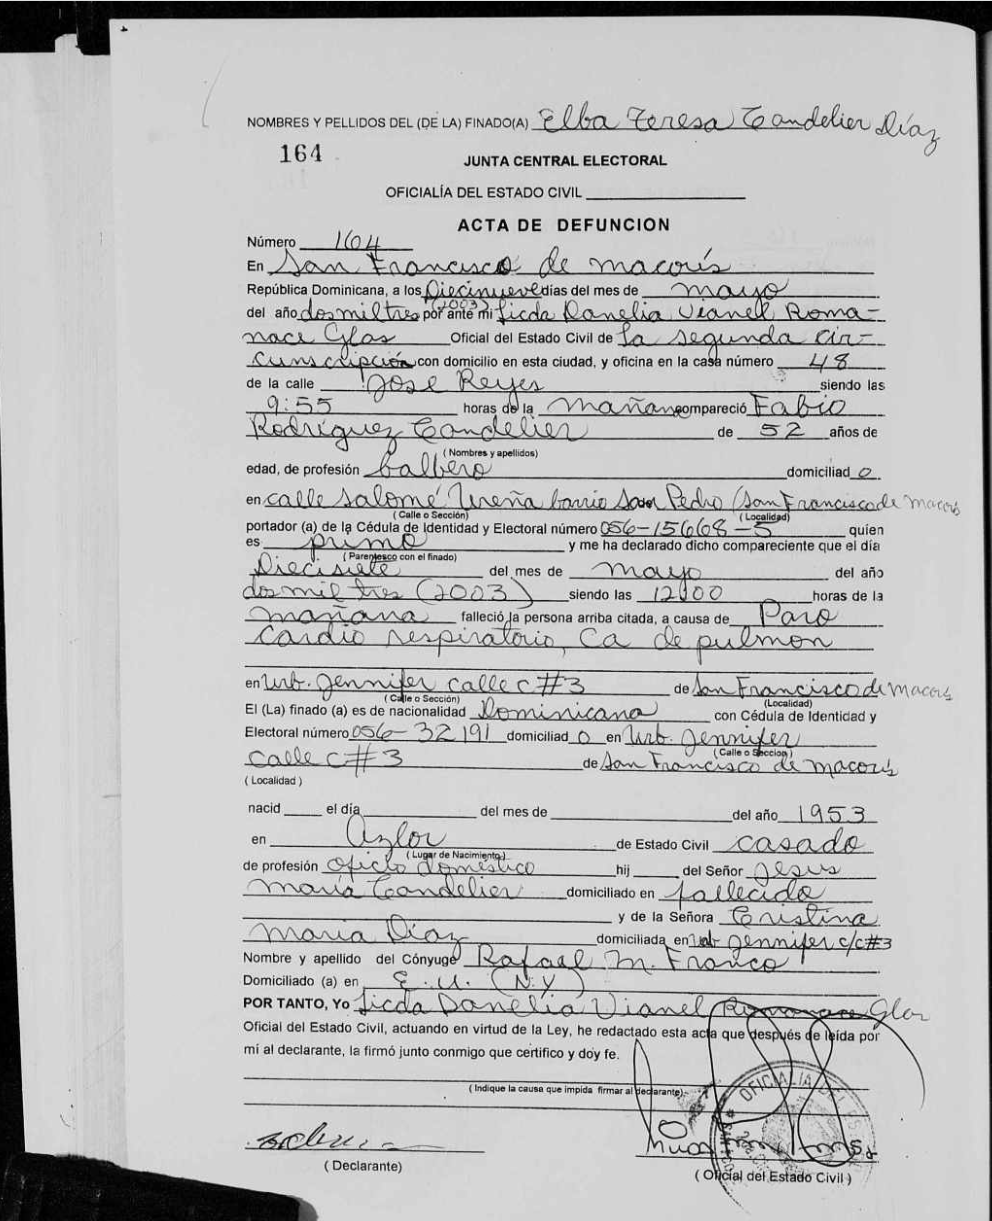 NOMBRES Y PELLIDOS DEL (DE LA) FINADO(A) Elba Teresa Candelier Díaz
164
JUNTA CENTRAL ELECTORAL
OFICIALÍA DEL ESTADO CIVIL
ACTA DE DEFUNCION
Número 164
En San Francisco de macorís
República Dominicana, a los Diecinueve días del mes de mayo
del año dos mil tres (2003) por ante mi Licda Danelia Vianel Roma-
nace Glas Oficial del Estado Civil de La segunda cir-
cunscripción con domicilio en esta ciudad, y oficina en la casa número 48
de la calle Jose Reyes siendo las
9:55 horas de la mañana compareció Fabio
Rodríguez Candelier de 52 años de
( Nombres y apellidos)
edad, de profesión balbero domiciliad o
en calle Salomé Ureña barrio San Pedro (San Francisco de Macorís
( Calle o Sección) ( Localidad)
portador (a) de la Cédula de Identidad y Electoral número 056-15668-5 quien
es primo y me ha declarado dicho compareciente que el día
( Parentesco con el finado)
Diecisiete del mes de mayo del año
dos mil tres (2003) siendo las 12:00 horas de la
mañana falleció la persona arriba citada, a causa de Paro
cardio respiratorio, Ca de pulmon
en Urb. Jennifer calle c #3 de San Francisco de Macorís
( Calle o Sección) (Localidad)
El (La) finado (a) es de nacionalidad Dominicana con Cédula de Identidad y
Electoral número 056-32191 domiciliad o en Urb. Jennifer
( Calle o Sección)
calle c #3 de San Francisco de macorís
( Localidad )
nacid el día del mes de del año 1953
en Azlor de Estado Civil casado
( Lugar de Nacimiento)
de profesión oficio doméstico hij del Señor Jesus
María Candelier domiciliado en fallecido
y de la Señora Cristina
María Díaz domiciliada en Urb Jennifer c/c #3
Nombre y apellido del Cónyuge Rafael M. Franco
Domiciliado (a) en E.U. (N.Y)
POR TANTO, Yo Licda Danelia Vianel Romanace Glas
Oficial del Estado Civil, actuando en virtud de la Ley, he redactado esta acta que después de leída por
mí al declarante, la firmó junto conmigo que certifico y doy fe.
( Indique la causa que impida firmar al declarante)
OFICIALIA DEL
( Declarante)
( Oficial del Estado Civil )